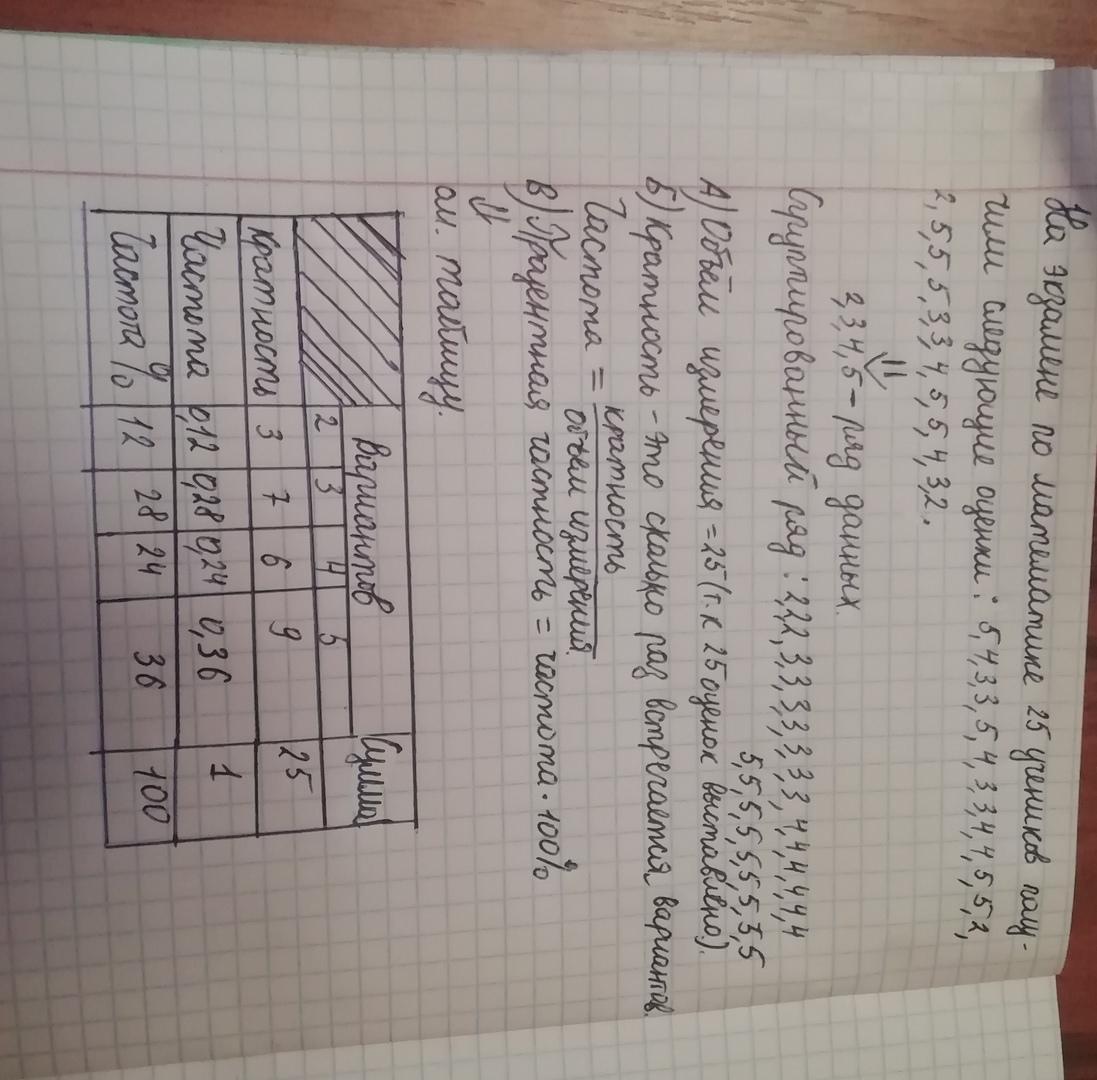 На экзамене по математике 25 учеников полу-
чили следующие оценки: 5,4,3,3,5,4,3,3,4,4,5,5,2,
2,5,5,5,3,3,4,5,5,4,3,2.
⇓
2,3,4,5 – ряд данных.
Сгруппированный ряд: 2,2,2, 3,3,3,3,3,3,3, 4,4,4,4,4,4
5,5,5,5,5,5,5,5,5
А) Объём измерения = 25 (т.к 25 оценок выставлено).
Б) Кратность – это сколько раз встречается вариантов.
Частота = кратность
объем измерения.
В) Процентная частность = частота · 100%
⇓
см. таблицу.
Вариантов Сумма
2 3 4 5
кратность 3 7 6 9 25
Частота 0,12 0,28 0,24 0,36 1
Частота % 12 28 24 36 100